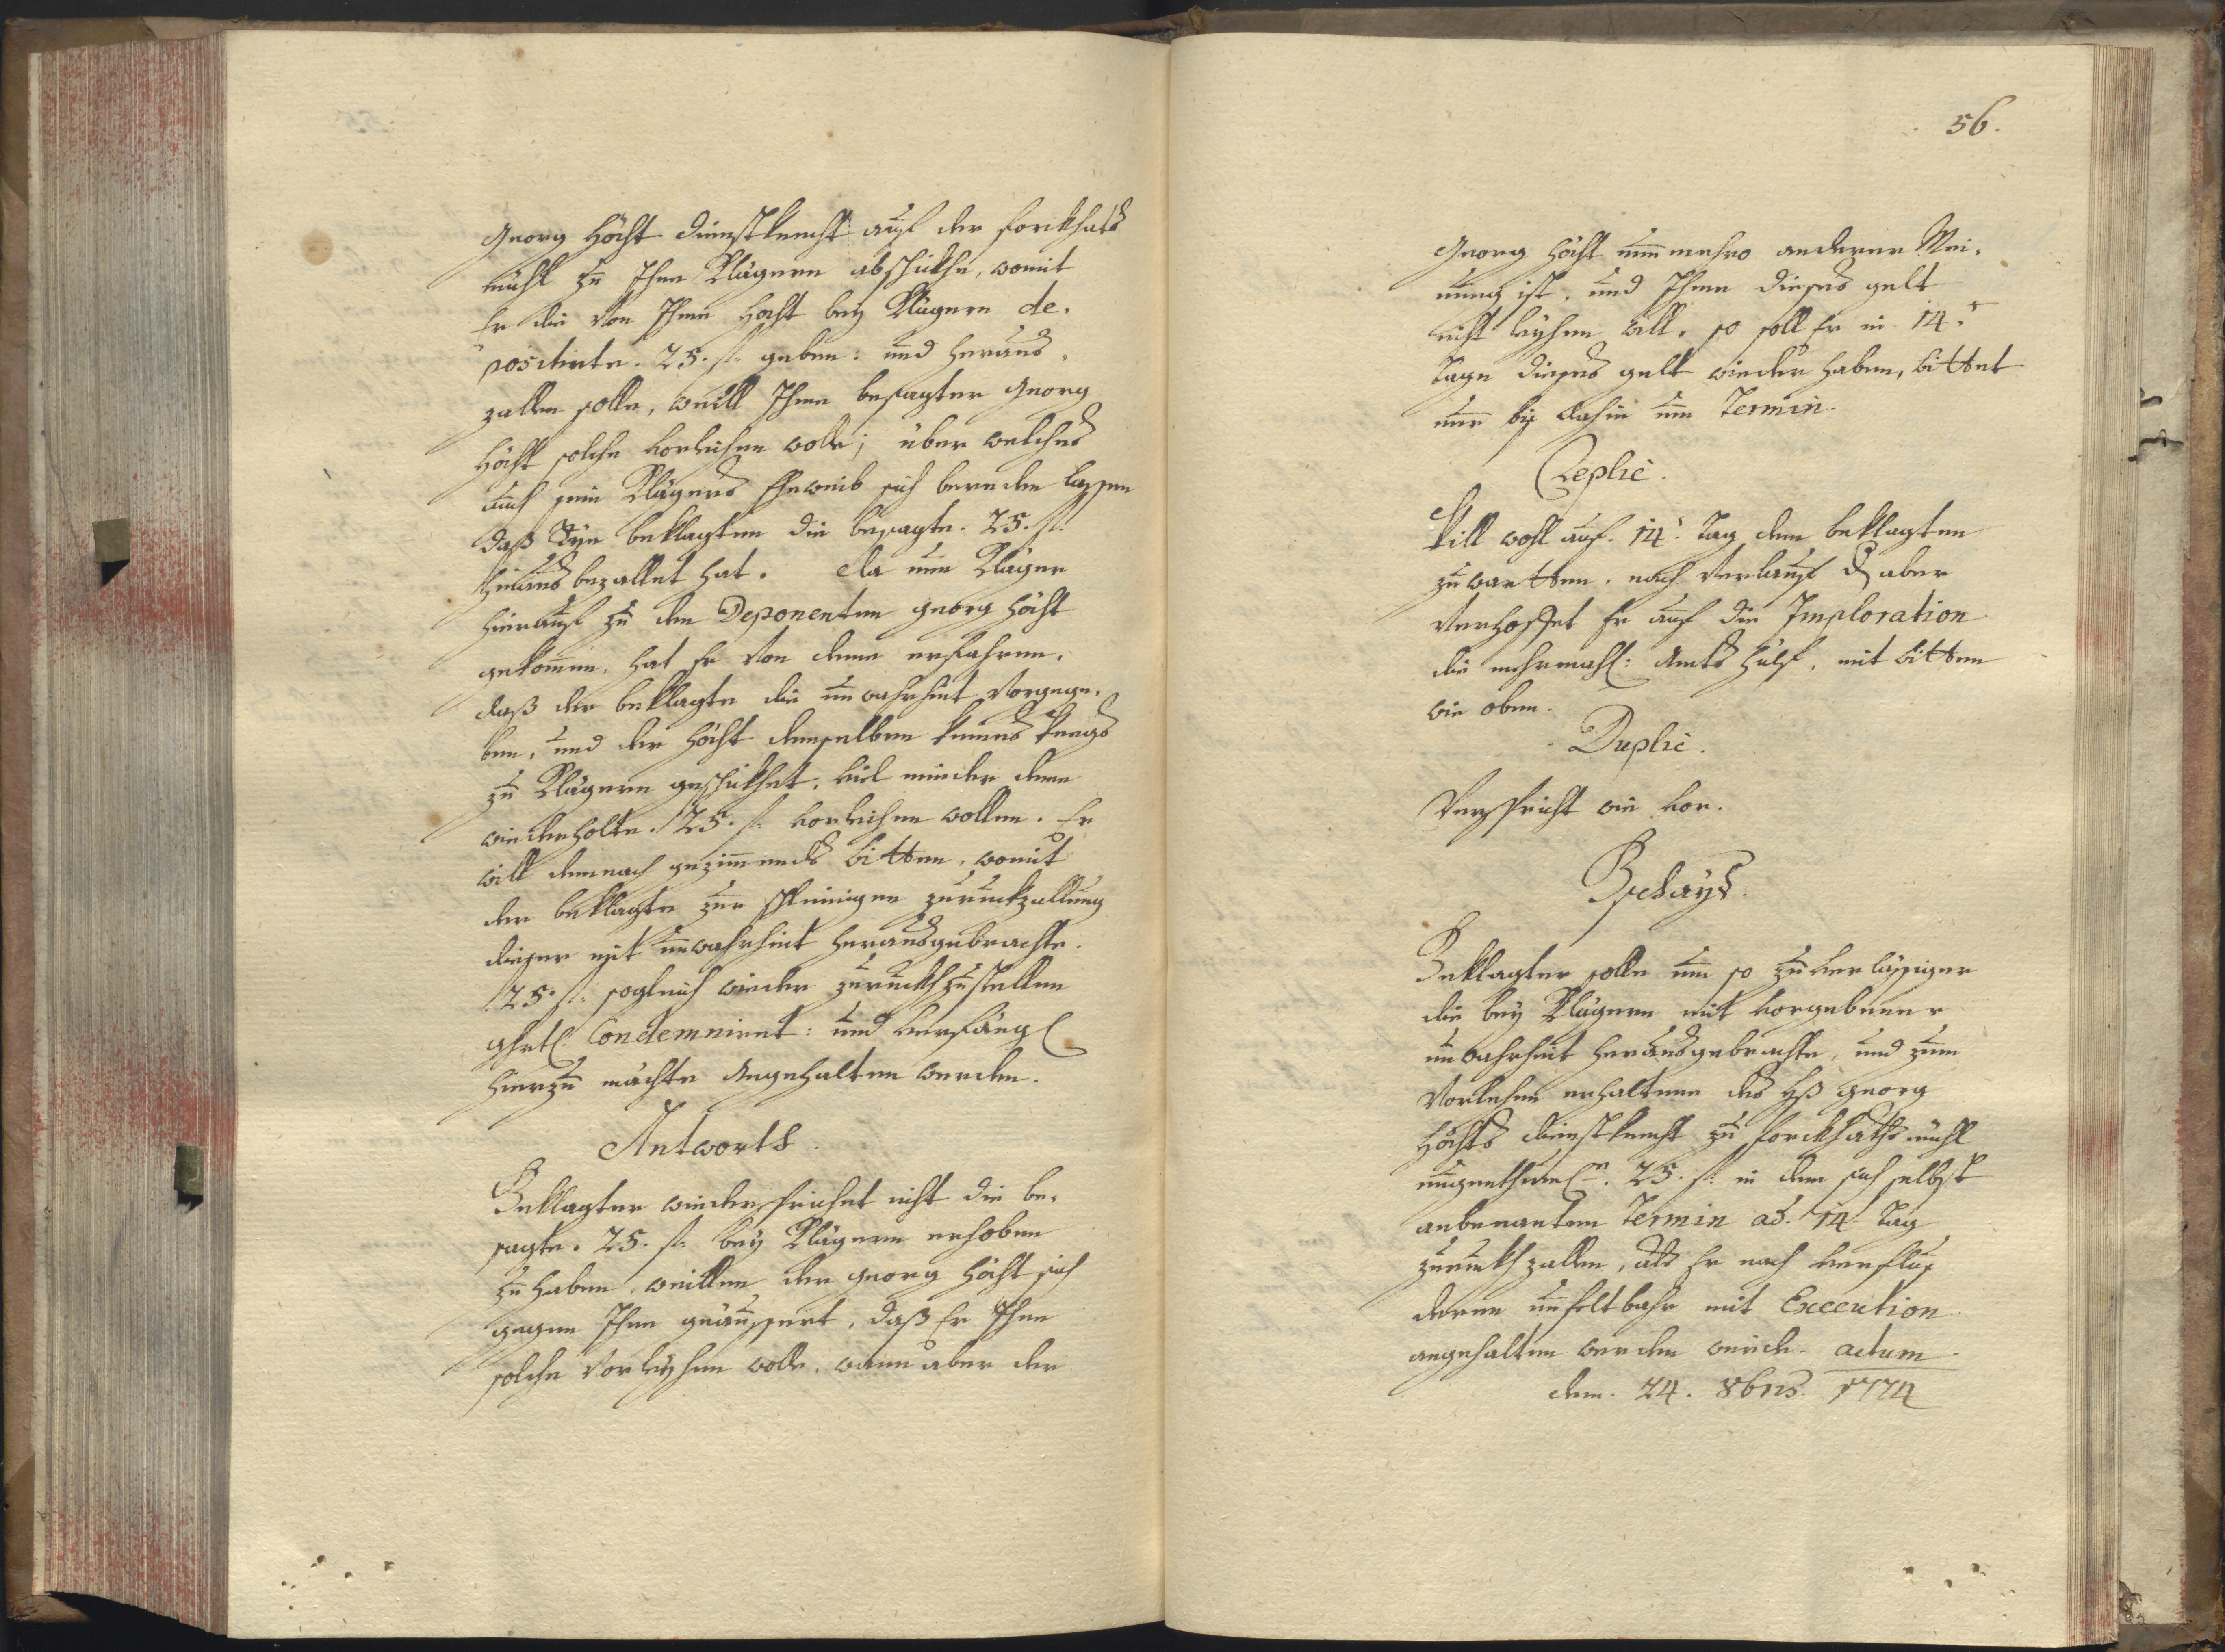 Georg Höcht dienstknecht auf der forckhats
mühl zu Ihme Klägern abschickhe, womit
Er die von Ihme Höcht bey Klägern de¬
positirte. 25. f. geben: und heraus¬
zallen solle, weill Ihme besagter Georg
Höcht solche vorleihen wole; über welches
auch sein Klägers Eheweib sich bereden lassen
daß Sye beklagten die besagte. 25. f.
hinaus bezallet hat. da nun Kläger
hierauf zu dem Deponenten Georg Höcht
gekommen, hat Er von deme erfahren,
daß der beklagte die unwahrheit vorgege¬
ben, und der Höcht demselben keines weegs
zu Klägern geschickhet, viel minder deme
wiederholte. 25. f. vorleihen wollen. Er
will demnach gezimmends bitten, womit
der beklagte zur schleinigen zuruckzallung
dieser mit unwahrheit herausgebrachte.
25. f. sogleich wieder zuruckhzustellen
ghrtl. Condemnirt: und verfängl.
hierzu möchte angehalten werden.
Antwortt
Beklagter wiederspricht nicht die be¬
sagte. 25. f. bey Klägern erhoben
zu haben, weillen der Georg Höcht sich
gegen Ihm geäussert, daß Er Ihme
solche vorleyhen wolle, wann aber der
56.
Georg Höcht nunmehro anderer Mei¬
nung ist, und Ihme dieses gelt
nicht leyhen will, so soll Er in 14.
Tage dieses gelt wieder haben, bittet
nur bis dahin um Termin.
Replic.
Will wohl auf. 14. Tag dem beklagten
zuwartten, nach verlauf d. aber
verhoffet Er auf die Imploration
die mehrmahl: Amts hülf, mit bitten
wie oben.
Duplic.
Verspricht wie vor.
Bschayd.
Beklagter solle um so zuverlässiger
die bey Klägern mit vorgebener
unwahrheit herausgebrachte, und zum
Vorlehen erhaltene des Hß Georg
Höchts dienstknecht zu forckhats mühl
25. f. in dem sich selbst
anbenanten Termin ad. 14. Tag
zuruckh zallen, als Er nach verflus
deren unfeltbahr mit Execution
angehalten werden würde. actum
den. 24. 8bris. 1774